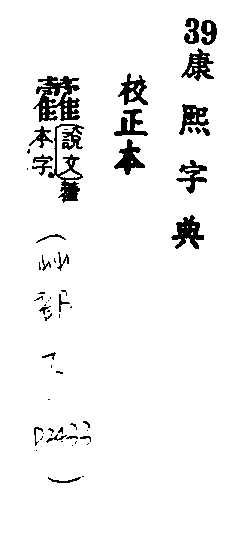 39康熙字典
校正本
說文
本字。
(艸部下.p2433)